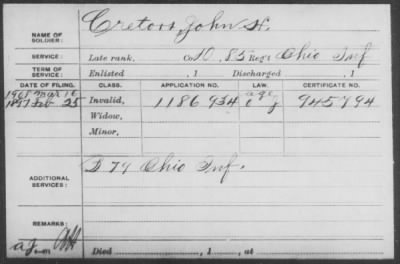 NAME OF SOLDIER: Cretors, John H.
SERVICE: Late rank, Co D, 85 Reg't Ohio Inf
TERM OF SERVICE: Enlisted , 1 Discharged , 1
DATE OF FILING. CLASS. APPLICATION NO. LAW. CERTIFICATE NO.
1908 Mar 16 age
1897 Feb 25 Invalid, 1186934 945794
Widow,
Minor,
ADDITIONAL SERVICES: D 79 Ohio Inf.
REMARKS:
Died , 1 , at